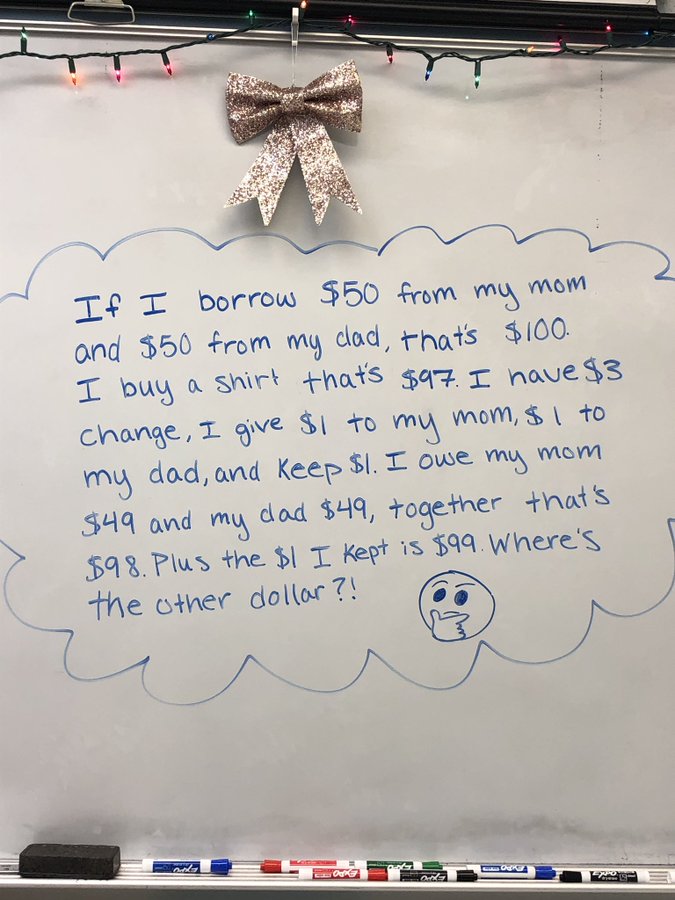 If I borrow $50 from my mom
and $50 from my dad, that's $100.
I buy a shirt that's $97. I have $3
change, I give $1 to my mom, $1 to
my dad, and keep $1. I owe my mom
$49 and my dad $49, together that's
$98. Plus the $1 I kept is $99. Where's
the other dollar?!
EXPO
EXPO
EXPO
EXPO
EXPO